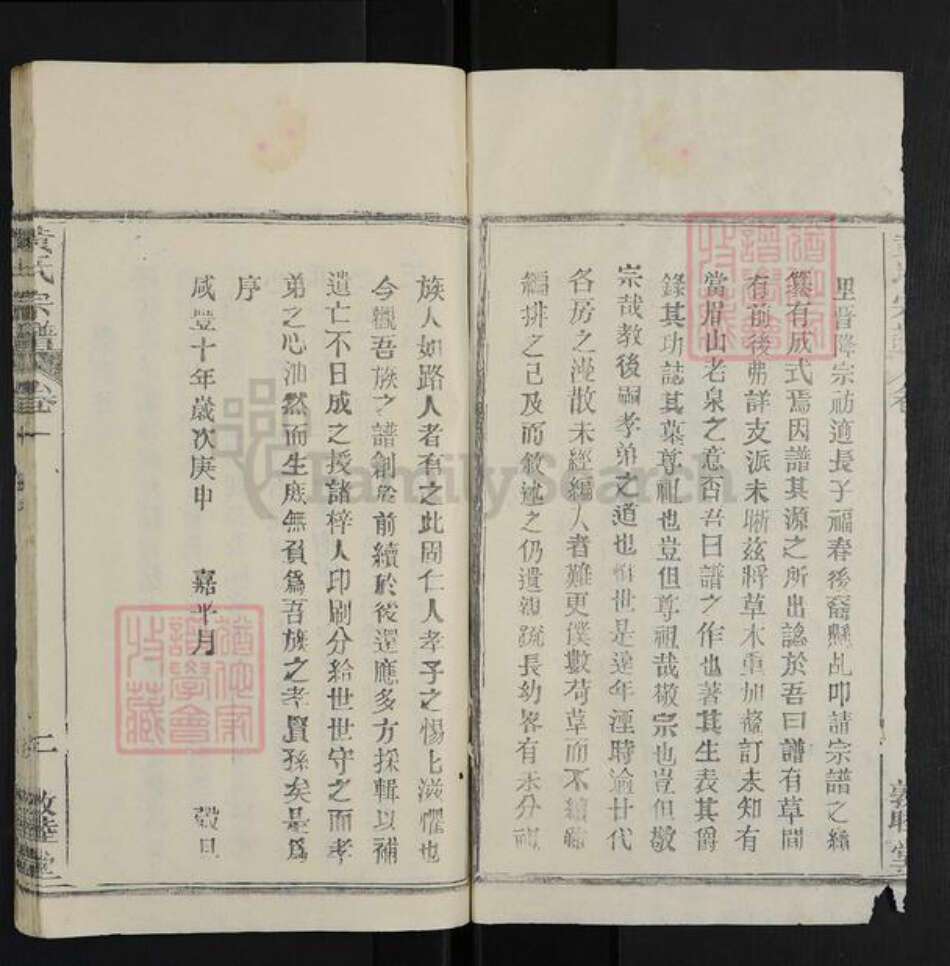 里晉降宗祊適長子福春後裔懸乩叩請宗譜之續
纂有成式焉因譜其源之所出諗於吾曰譜有草間
有前後弗詳支派未晰茲將草本重加釐訂未知有
當眉山老泉之意否吾曰譜之作也著其生表其爵
錄其功誌其墓尊祖也豈但尊祖哉敬宗也豈但敬
宗哉教後嗣孝弟之道也世是達年湮時逾廿代
各房之漫散未經編人者難更僕數苟草而不續
編排之已及而敘述之仍遺親疏長幼畧有未分視
族人如路人者有之此固仁人孝子之惕上滋懼也
今觀吾族之譜創於前續於後還應多方採輯以補
遺亡不日成之授諸梓人印刷分給世世守之而孝
弟之心油然而生庶無負爲吾族之孝賢孫矣是爲
序
咸豐十年歲次庚申 嘉平月 穀旦
黃氏宗譜 卷一
二 敦睦堂
敦睦堂
猶他家譜學會收藏
猶他家譜學會收藏
FamilySearch